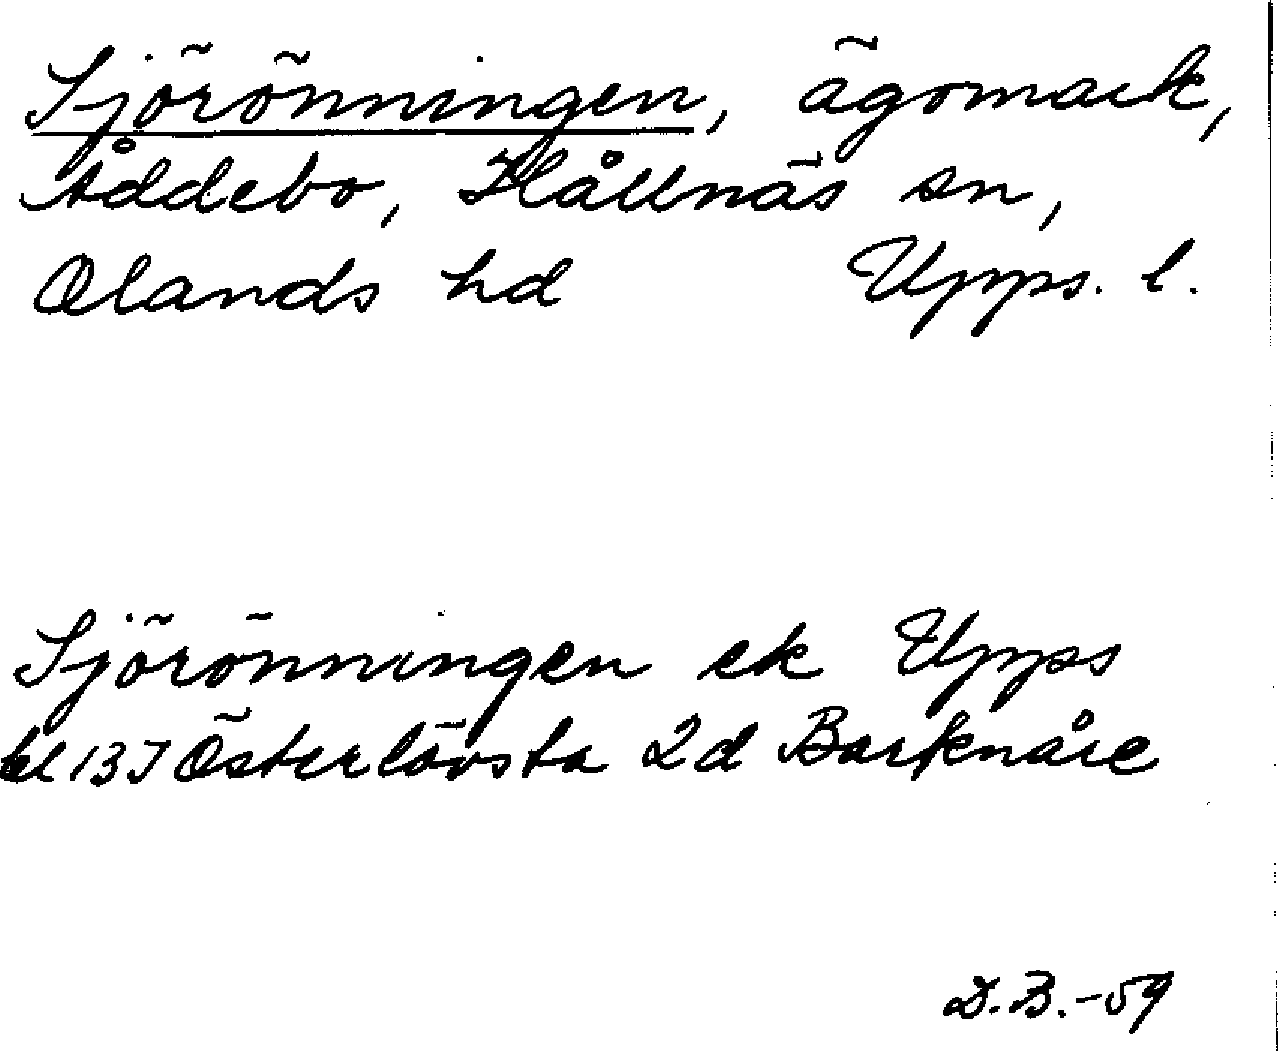 Sjörönningen, ägomark,
Åddebo, Hållnäs sn,
Olands hd Upps. l.
Sjörönningen ek Upps
bl 13J Österlövsta 2d Barknåre
D.B.-59